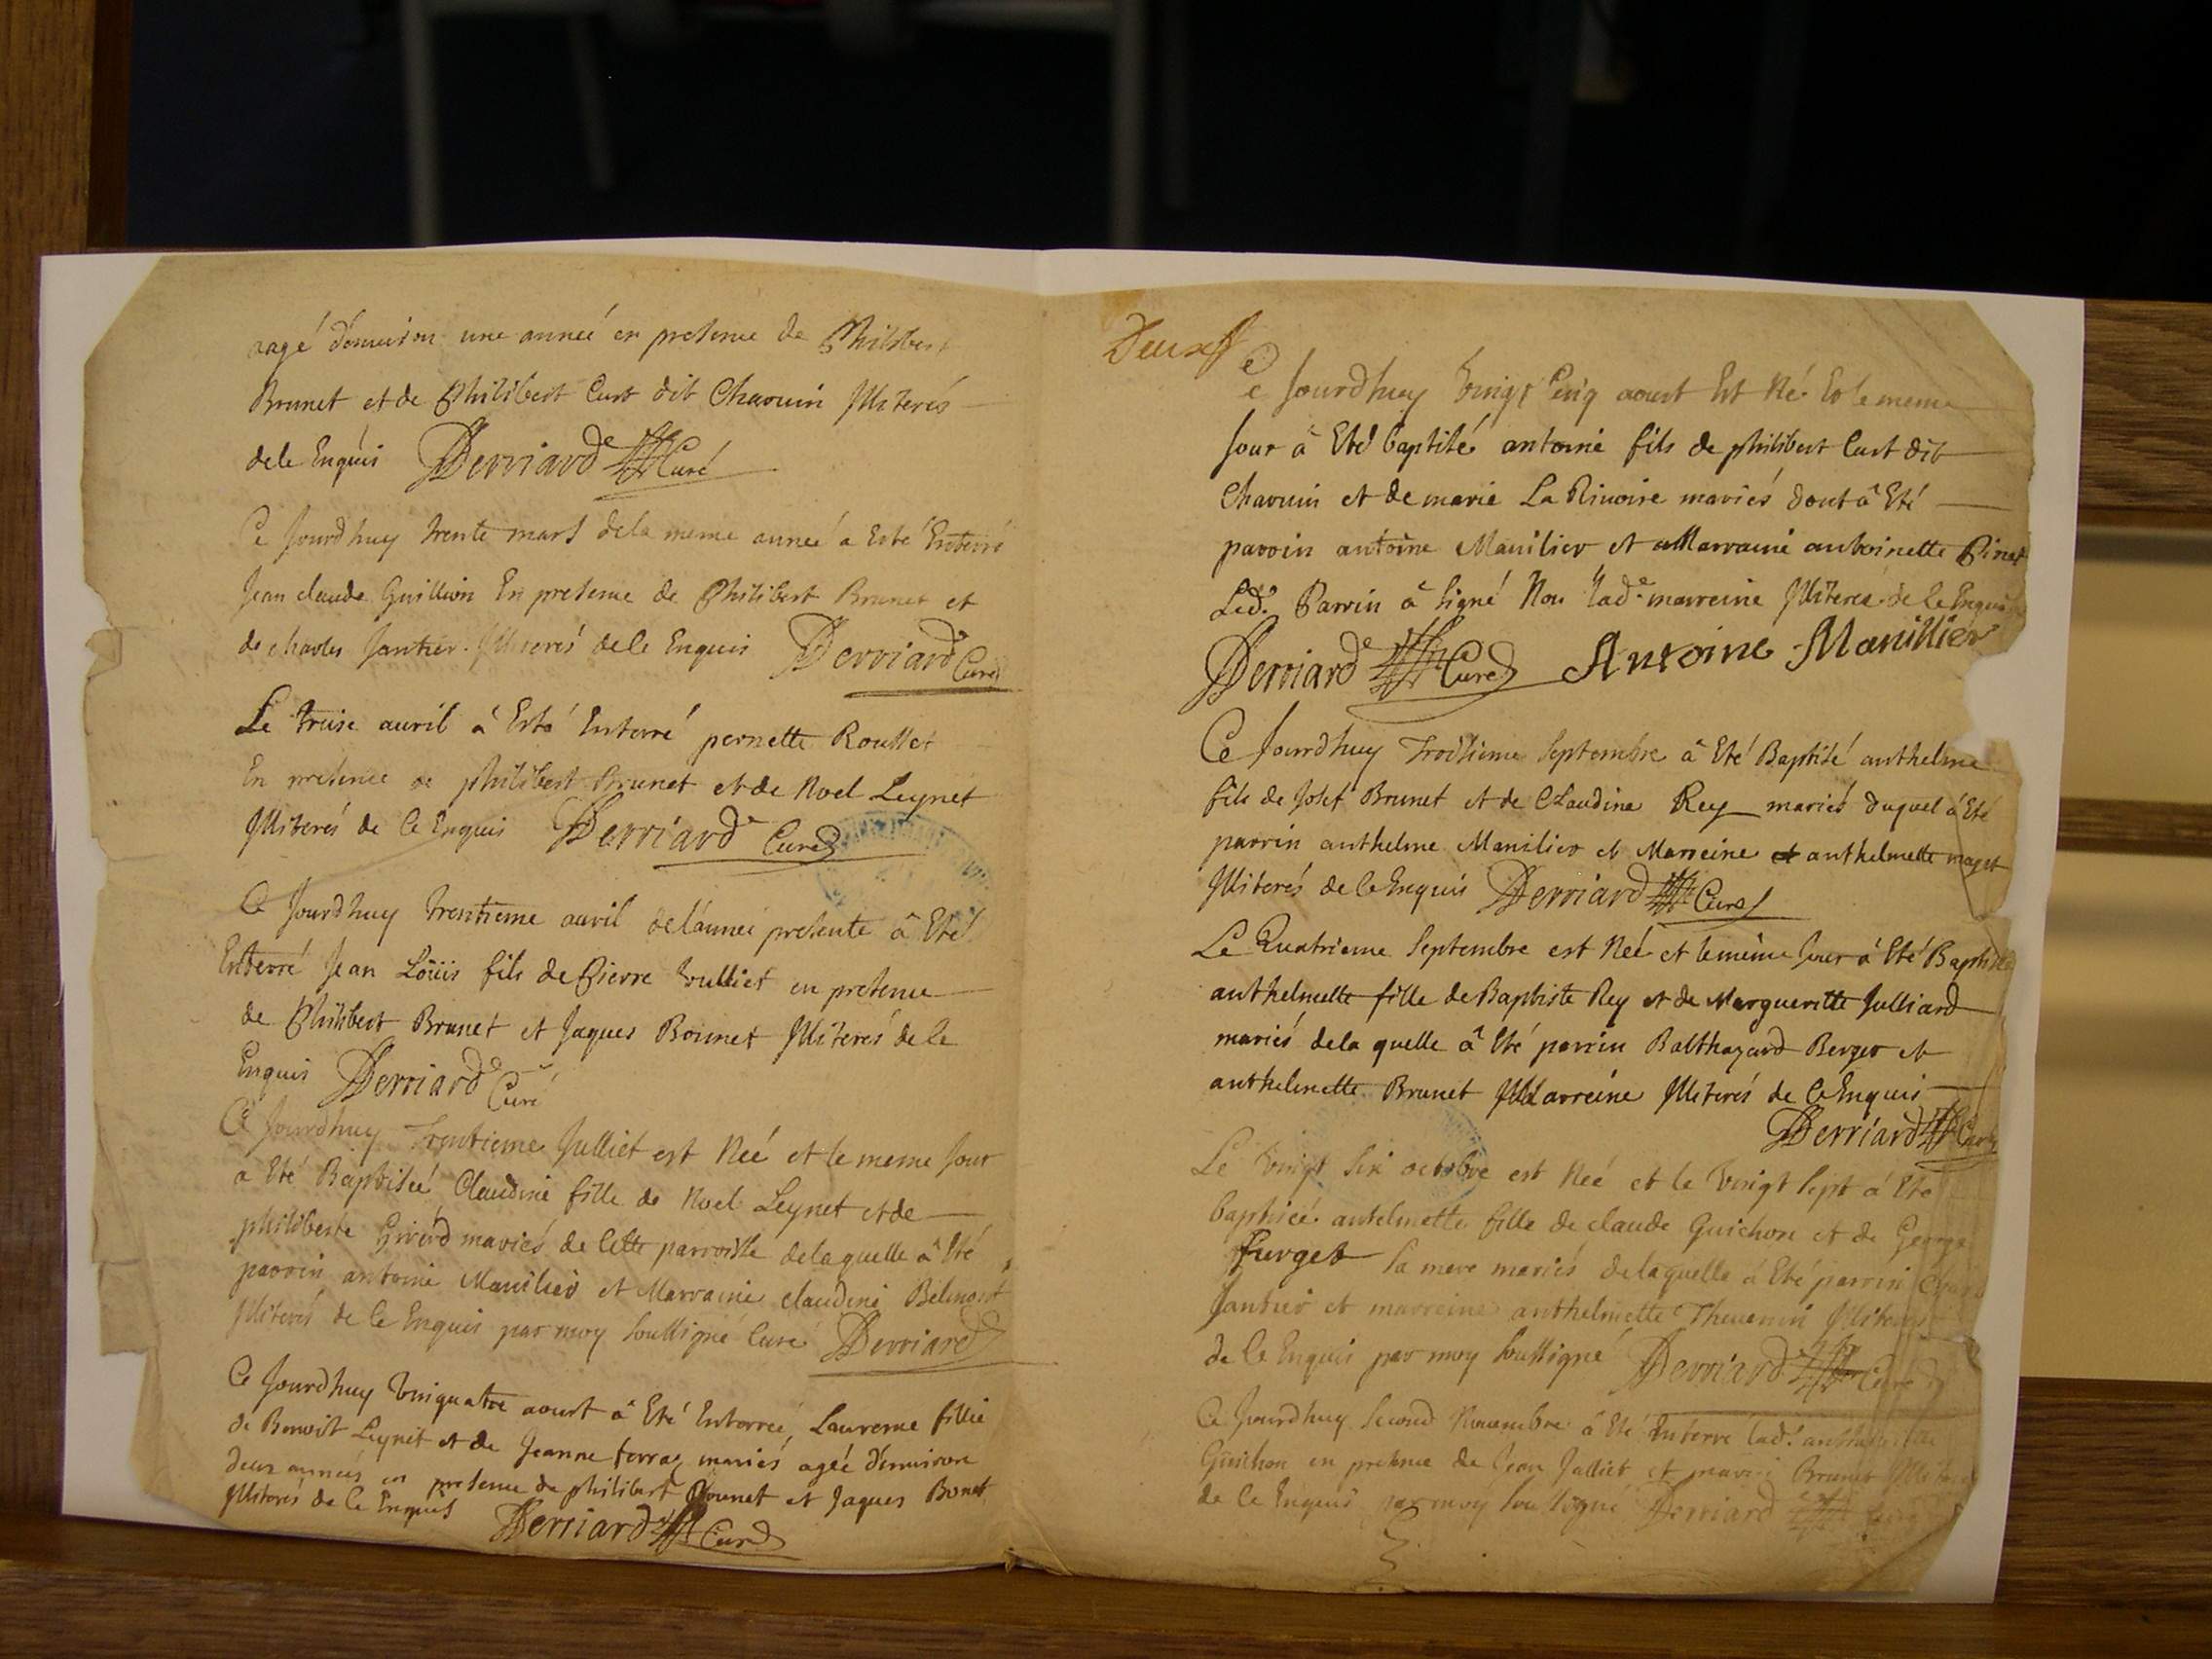 aagé d'enuiron une anneé en presence de Philibert
Brunet et de Philibert Curt dit Chauuin Illiterés
de ce Enquis Derriard Curé
Ce Jourdhuy trente mars dela meme anneé a Esté Enterré
Jean claude Guillion En presence de Philibert Brunet et
de charles Jantier Illiterés de ce Enquis Derriard Curé
Le treise auril â Esté Enterré pernette Rousset
En presence de philibert Brunet et de Noel Leynet
Illiterés de Ce Enquis Derriard Curé
Ce Jourdhuy trentieme auril de l'anneé presente â Eté
Enterré Jean Loüis fils de Pierre Vulliet en presence
de Philibert Brunet et Jaques Bonnet Illiterés de ce
Enquis Derriard Curé
Ce Jourdhuy Trentieme Julliet est Neé et le meme Jour
a Eté Baptiseé Claudine fille de Noel Leynet et de
philiberte Girerd mariés de Cette parroisse delaquelle â Eté
parrin antoine Manilier et Marraine claudine Belmont
Illiterés de Ce Enquis par moy soussigné Curé Derriard
Ce Jourdhuy Vingquatre aoust â Eté Enterreé, Laurence fillie
de Benoist Leynet et de Jeanne ferraz mariés ageé d'enuiron
deux anneés en presence de philibert Brunet et Jaques Bonet
Illiterés de Ce Enquis Derriard Curé
Deux
Ce Jourdhuy Vingt Cinq aoust Est Né Et le meme
Jour â Eté baptisé antoine fils de philibert Curt dit
Chauuin et de marie La Riuoire mariés dont â Eté
parrin antoine Manilier et Marraine antoinette Pinet
Led. Parrin â signé Non lad. marreine Illitereé de ce Enquis
Derriard Curé Antoine Manillier
Ce Jourdhuy Troisieme Septembre â Eté Baptisé anthelme
fils de Josef Brunet et de Claudine Rey mariés duquel â Eté
parrin anthelme Manilier et Marreine anthelmette
Illiterés de ce Enquis Derriard Curé
Le Quatrieme Septembre est Neé et le même Jour â Eté Baptiseé
anthelmette fille de Baptiste Rey et de Margueritte Julliard
mariés dela quelle â Eté parrin Balthazard Berger et
anthelmette Brunet Marreine Illiterés de Ce Enquis
Derriard Curé
Le Vingt Six octobre est Neé et le Vingt Sept â Eté
baptiseé antelmette fille de claude Guichon et de George
furget Sa mere mariés delaquelle â Eté parrin
Jantier et marreine anthelmette Theuenin Illiterés
de Ce Enquis par moy soussigné Derriard Curé
Ce Jourdhuy Second Nouembre â Eté Enterré lad.
Guichon en presence de Jean Julliet et Brunet
de Ce Enquis par moy soussigné Derriard Curé